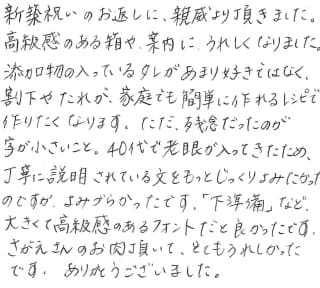 新築祝いのお返しに、親戚より頂きました。
高級感のある箱や、案内に、うれしくなりました。
添加物の入っているタレがあまり好きではなく、
割下やたれが、家庭でも簡単に作れるレシピで
作りたくなります。ただ、残念だったのが
字が小さいこと。40代で老眼が入ってきたため、
丁寧に説明されている文をもっとじっくりよみたかった
のですが、よみづらかったです。「下準備」など、
大きくて高級感のあるフォントだと良かったです。
さがえさんのお肉頂いて、とてもうれしかった
です。ありがとうございました。